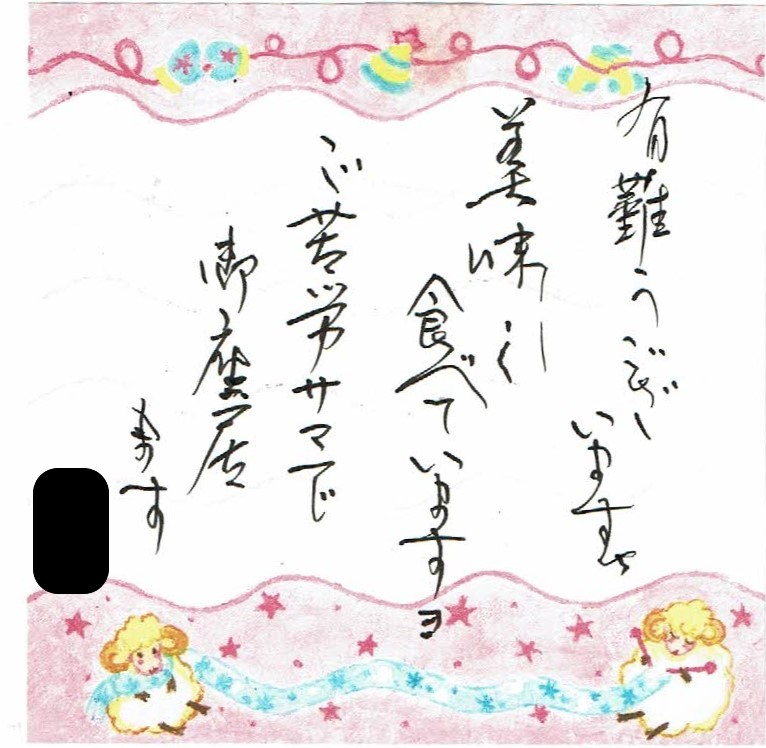 有難うござ
います
美味しく
食べています
ヨ
ご苦労サマで
御座居
ます